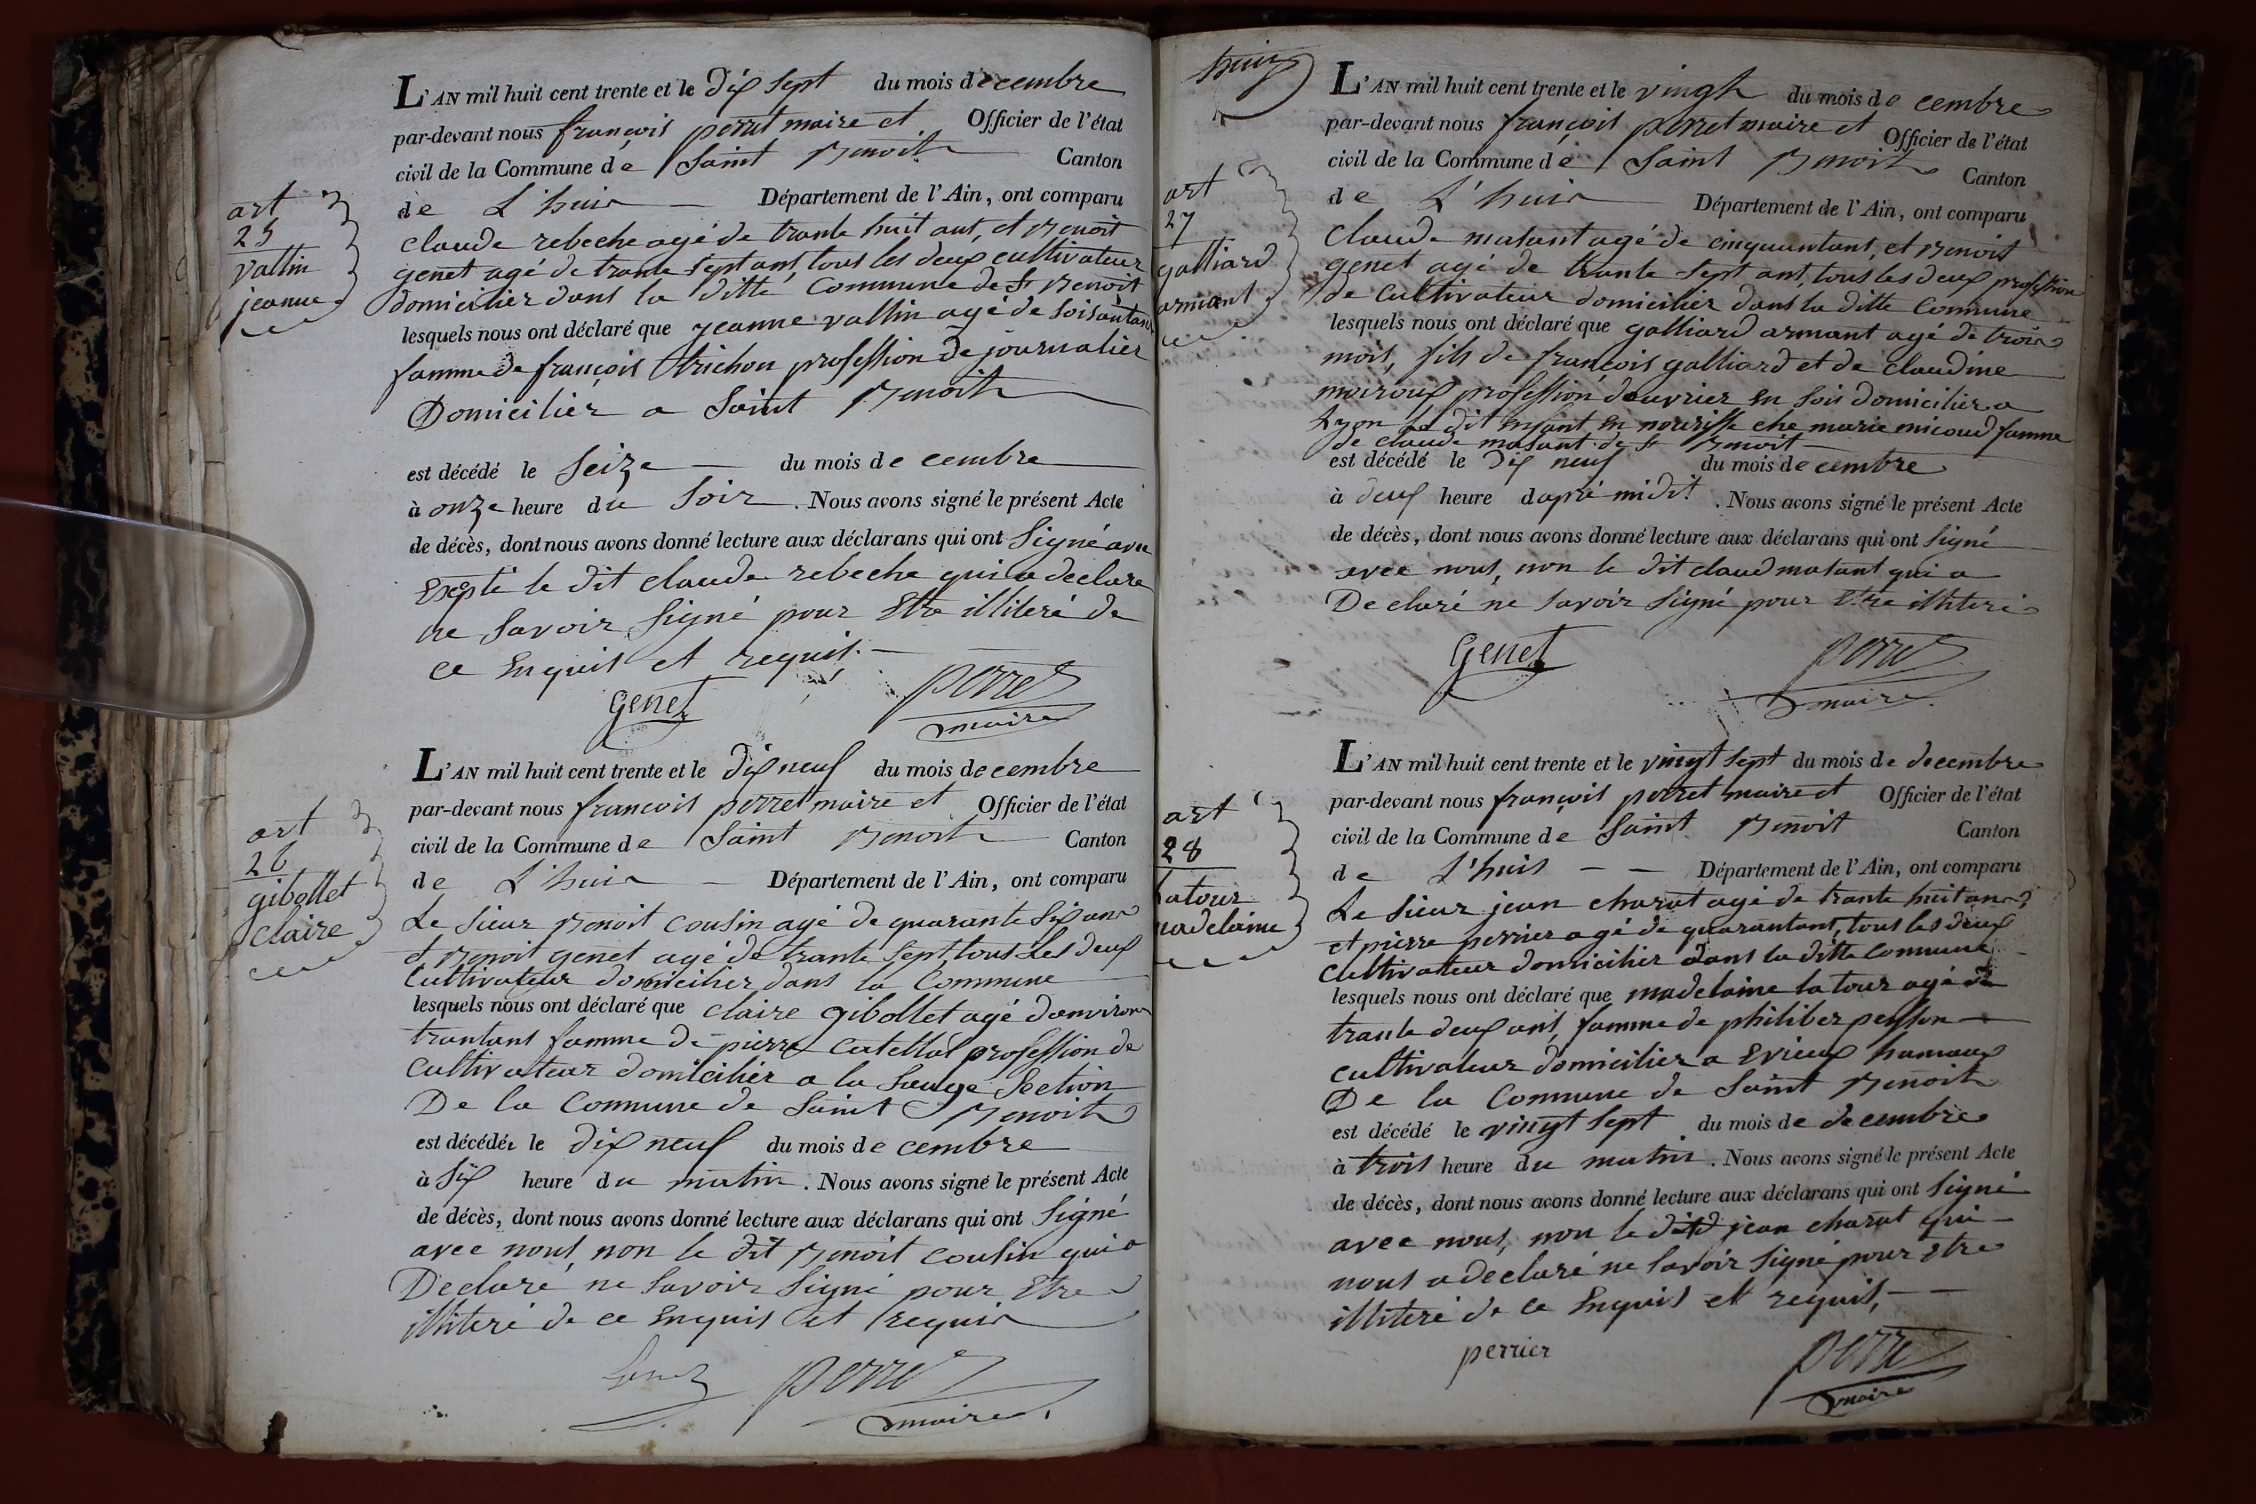 art
25
vallin
jeanne
L'AN mil huit cent trente et le dix sept du mois decembre
par-devant nous françois perret maire et Officier de l'état
civil de la Commune de Saint Benoit Canton
de L'huis Département de l'Ain, ont comparu
claude rebeche agé de trante huit ans, et Benoit
genet agé de trante sept ans, tous les deux cultivateur
domicilier dans la ditte Commune de St Benoit
lesquels nous ont déclaré que jeanne vallin agé de soisantans
famme de françois trichon profession de journalier
Domicilier a Saint Benoit
est décédé le Seize du mois decembre
à onze heure du Soir. Nous avons signé le présent Acte
de décès, dont nous avons donné lecture aux déclarans qui ont Signé avn
Exepté le dit claude rebeche qui a declare
ne Savoir Signé pour Etre illiteré de
ce Enquis et requis.
Genet perret
maire
art
26
gibollet
claire
L'AN mil huit cent trente et le dix neuf du mois decembre
par-devant nous françois perret maire et Officier de l'état
civil de la Commune de Saint Benoit Canton
de L'huis Département de l'Ain, ont comparu
Le Sieur Benoit cousin agé de quarante Six ans
et Benoit genet agé de trante Sept, tous Les deux
Cultivateur domicilier dans la Commune
lesquels nous ont déclaré que claire gibollet agé denviron
trantans famme de pierre catellat profession de
Cultivateur domicilier a la Sauge Section
De la Commune de Saint Benoit
est décédée le dix neuf du mois decembre
à Six heure du matin. Nous avons signé le présent Acte
de décès, dont nous avons donné lecture aux déclarans qui ont Signé
avec nous, non le dit Benoit cousin qui a
Declaré ne Savoir Signé pour Etre
illiteré de ce Enquis et requis
Genet perret
maire
art
27
galliard
armant
L'AN mil huit cent trente et le vingt du mois decembre
par-devant nous françois perret maire et Officier de l'état
civil de la Commune de Saint Benoit Canton
de L'huis Département de l'Ain, ont comparu
Claude masant agé de cinquantans, et Benoit
genet agé de trante Sept ans, tous les deux profession
de Cultivateur domicilier dans la ditte Commune
lesquels nous ont déclaré que galliard armant agé de trois
mois, fils de françois galliard et de claudine
moiroux profession douvrier en Soie domicilier a
Lyon le dit enfant en nourisse che marie micoud famme
de claude masant de St Benoit
est décédé le dix neuf du mois decembre
à deux heure dapré midit. Nous avons signé le présent Acte
de décès, dont nous avons donné lecture aux déclarans qui ont Signé
avec nous, non le dit claud masant qui a
Declaré ne Savoir Signé pour Etre illiteré
Genet perret
maire
art
28
Latour
madelaine
L'AN mil huit cent trente et le vingt Sept du mois de decembre
par-devant nous françois perret maire et Officier de l'état
civil de la Commune de Saint Benoit Canton
de L'huis Département de l'Ain, ont comparu
Le Sieur jean charat agé de trante huit ans
et pierre perrier agé de quarantans, tous les deux
cultivateur domicilier dans la ditte Commune
lesquels nous ont déclaré que madelaine latour agé de
trante deux ans, famme de philiber peysson
cultivateur domicilier a Evieux hamaux
De la Commune de Saint Benoit
est décédé le vingt Sept du mois de decembre
à trois heure du matin. Nous avons signé le présent Acte
de décès, dont nous avons donné lecture aux déclarans qui ont Signé
avec nous, non le dit jean charat qui
nous a declaré ne Savoir Signé pour Etre
illiteré de ce Enquis et requis,
perrier perret
maire